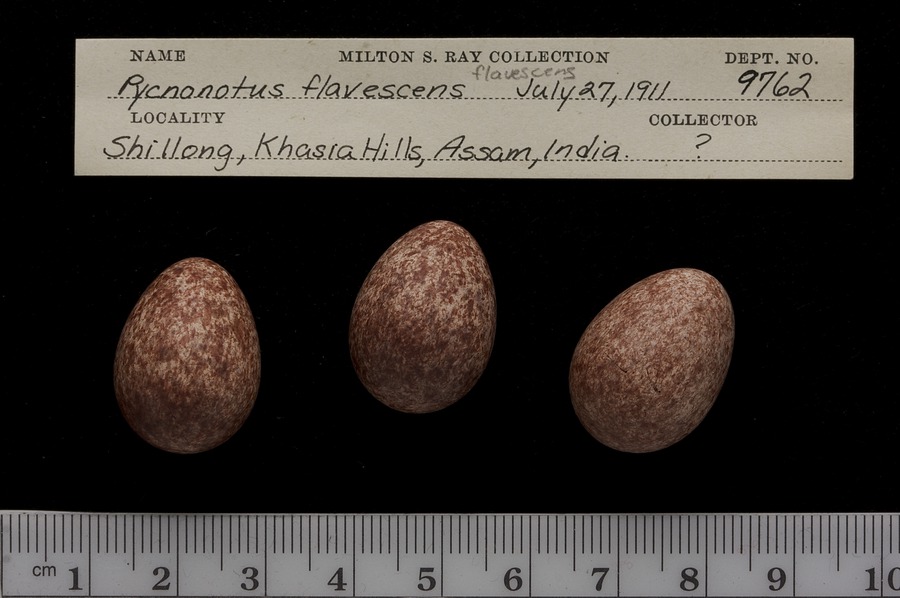 NAME MILTON S. RAY COLLECTION DEPT. NO.
flavescens
Pycnonotus flavescens July 27, 1911 9762
LOCALITY COLLECTOR
Shillong, Khasia Hills, Assam, India. ?
cm 1 2 3 4 5 6 7 8 9 10